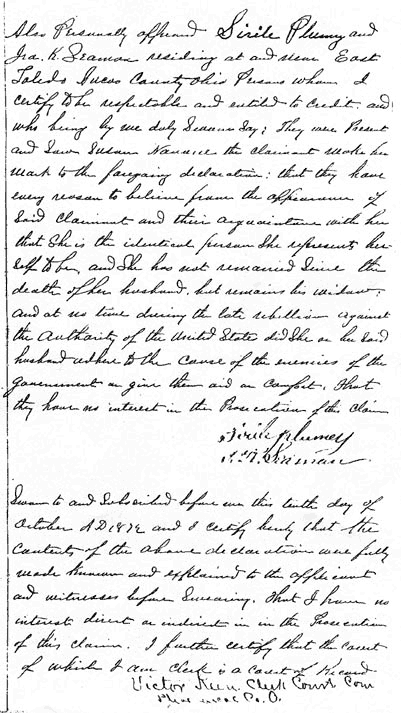 Also Personally appeared Sirile Plumy and
Ira K. Seaman residing at and near East
Toledo Lucas County Ohio Persons whom I
certify to be respectable and entitled to credit, and
who being by me duly Sworn Say; They were Present
and Saw Susan the claimant make her
mark to the foregoing declaration; that they have
every reason to believe from the appearance of
Said Claimant and their acquaintance with her
that She is the identical person She represents her
self to be, and She has not remarried Since the
death of her husband, but remains his widow;
and at no time during the late rebellion against
the Authority of the United States did She or her Said
husband adhere to the cause of the enemies of the
government or give them aid or comfort. That
they have no interest in the Prosecution of this Claim
Sirile plumey
Seaman
Sworn to and Subscribed before me this tenth day of
October AD 1872 and I certify hereby that the
contents of the above declaration were fully
made known and explained to the applicant
and witnesses before Swearing. That I have no
interest direct or indirect in in the Prosecution
of this claim. I further certify that the court
of which I am Clerk is a Court of Record
Victor Keen Clerk Court Com
Co. O.